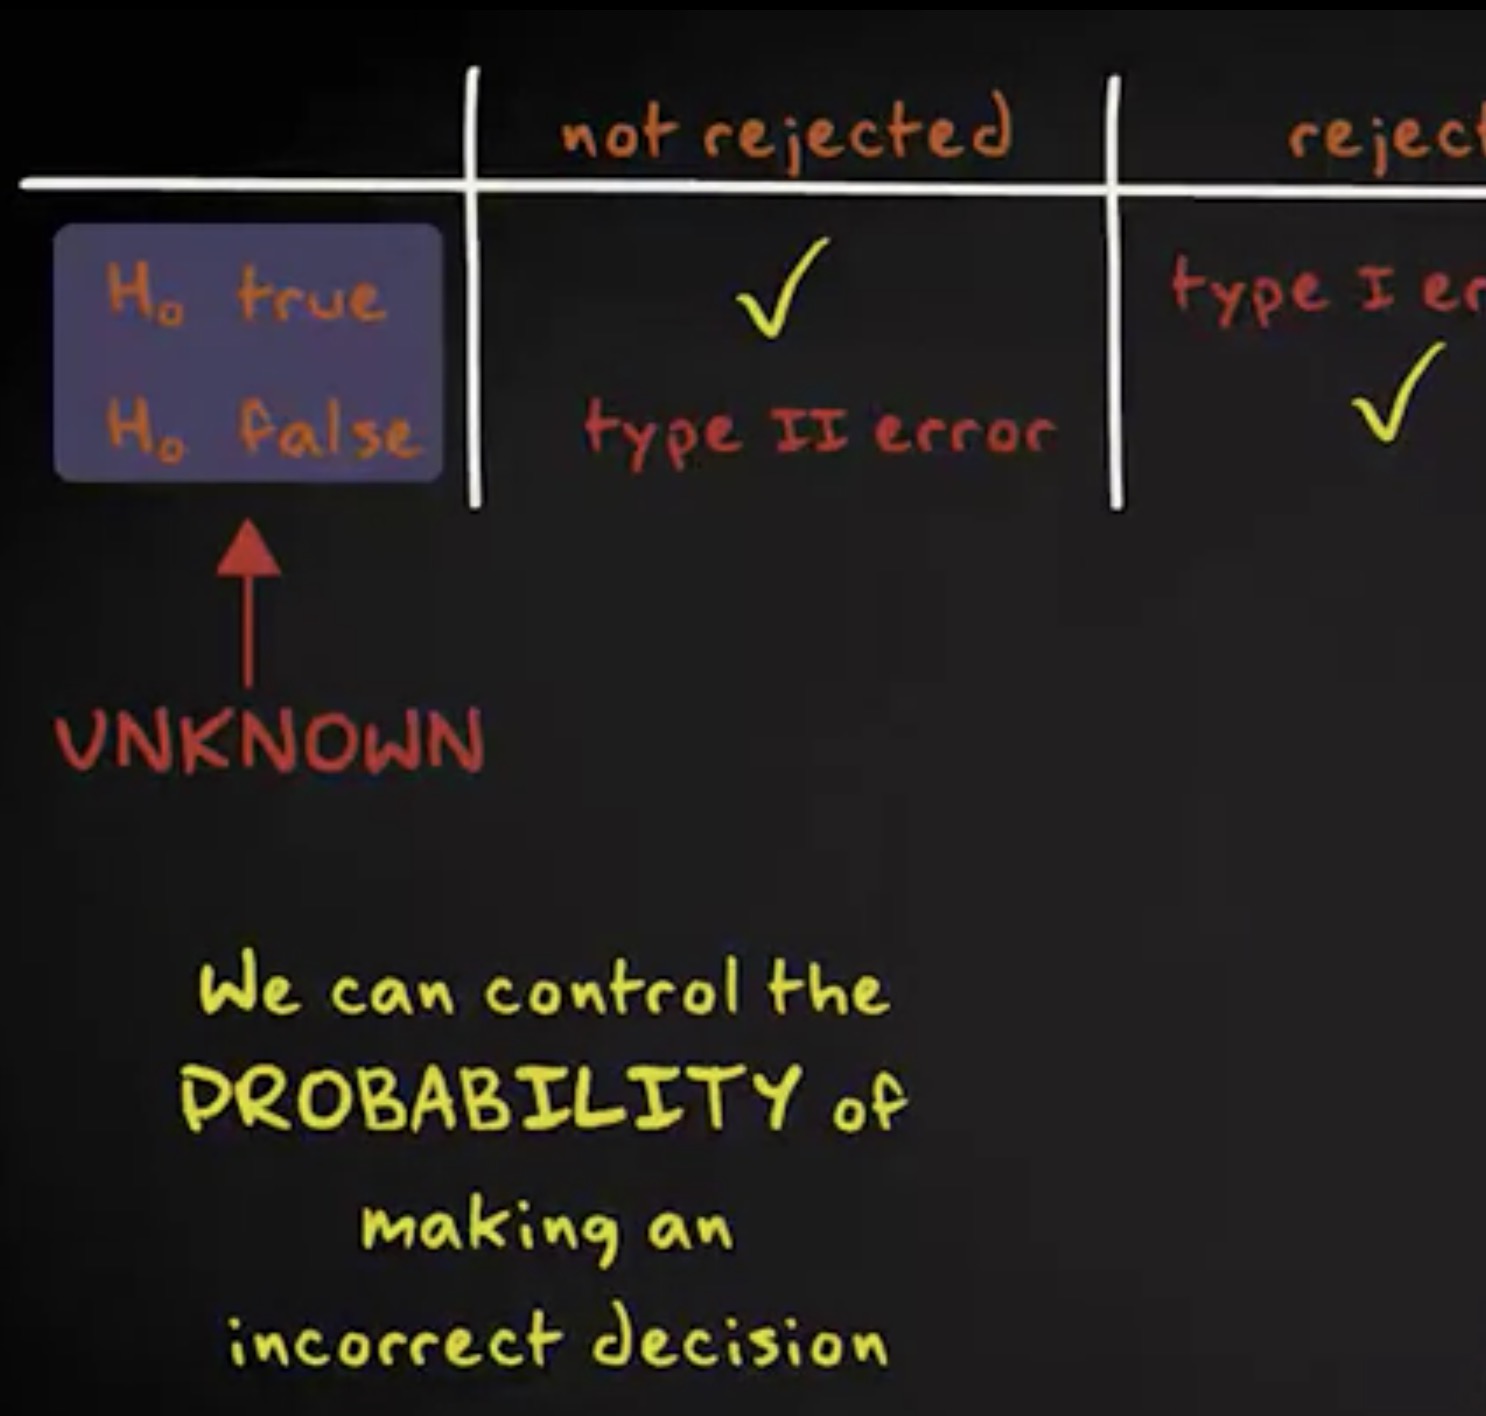 not rejected reject
H₀ true ✓ type I er
H₀ false type II error ✓
UNKNOWN
We can control the
PROBABILITY of
making an
incorrect decision